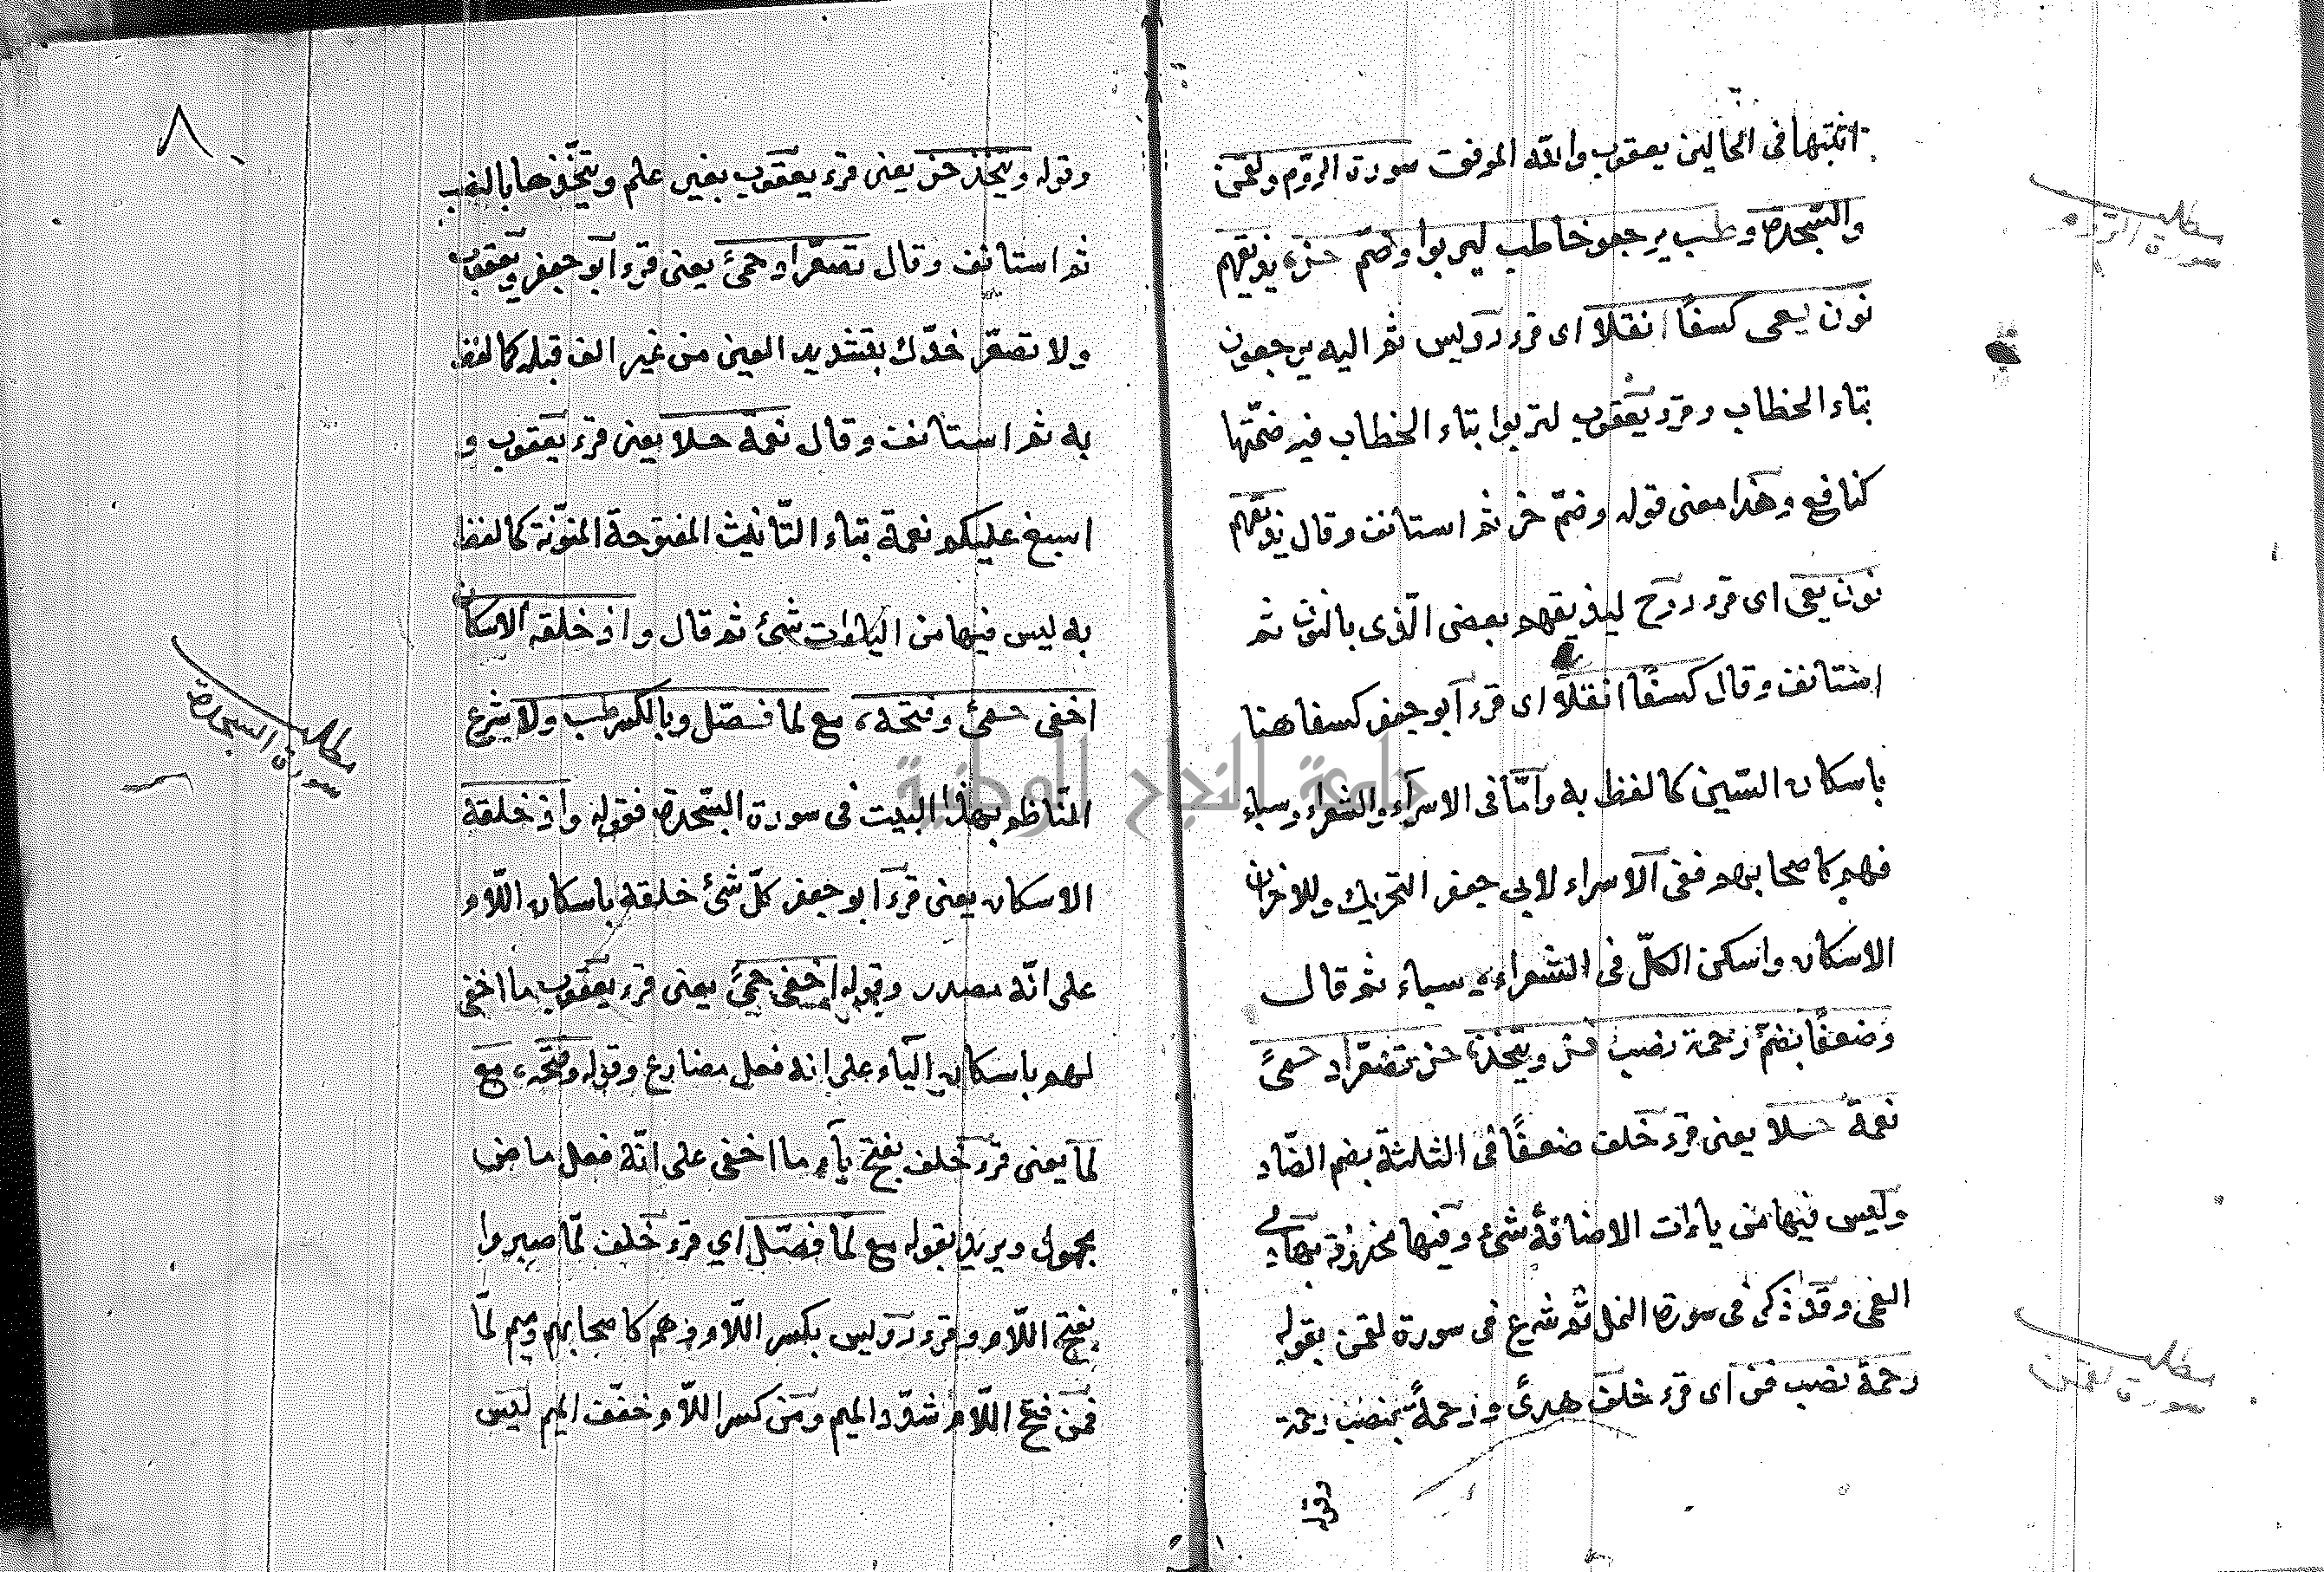 اثبتها فى الحالين يعقوب والله الموفق سورة الروم ولقمن
والسجدة وطب يرجعو خاطب ليربوا وضم حز، يذيقهم
نون يعى كسفًا انقلا اى قرء رويس ثم اليه يرجعون
بتاء الخطاب وقرء يعقوب لتربوا بتاء الخطاب فيه ضمّتها
كنافع وهذا معنى قوله وضم حز ثم استانف وقال يذيقهم
نون يعى اى قرء روح ليذيقهم بعض الّذى بالنون ثم
استانف وقال كسفًا انقلا اى قرء ابو جعفر كسفا هنا
باسكان السّين كما لفظ به وامّا فى الاسراء والشعراء وسباء
فهم كاصحابهم ففى الاسراء لابى جعفر التحريك وللاخران
الاسكان واسكن الكلّ فى الشعراء وسباء ثم قال
وضعفًا بضمّ رحمة نصب فز ويتخذ، حز تصعّر اذ حمىً
نعمة حلا يعنى قرء خلف ضعفًا فى الثلثة بضم الضّاد
وليس فيها من ياءات الاضافة شئ وفيها محذوفة بهادى
العمى وقد ذكر فى سورة النمل ثم شرع فى سورة لقمن بقوله
رحمة نصب فز اى قرء خلف هدىً ورحمةً بنصب رحمة
وقوله
سورة الروم
سورة لقمن
٨
وقوله ويتخذ حز يعنى قرء يعقوب بغير علم ويتّخذها بالنصب
ثم استانف وقال تصعّر اذ حمىً يعنى قرء ابو جعفر ويعقوب
ولا تصعّر خدّك بتشديد العين من غير الف قبله كما لفظ
به ثم استانف وقال نعمة حلا يعنى قرء يعقوب و
اسبغ عليكم نعمة بتاء التّانيث المفتوحة المنوّنة كما لفظ
به ليس فيها من الياءات شئ ثم قال واذ خلقه الاسكان
اخفى حمى وفتحه، مع لما فصّل وبالكسر طب ولا شرع
النّاظم بهذا البيت فى سورة السّجدة فقوله واذ خلقة
الاسكان يعنى قرء ابو جعفر كلّ شئ خلقة باسكان اللّام
على انّه مصدر وقوله اخفى حمىً يعنى قرء يعقوب ما اخفى
لهم باسكان الياء على انه فعل مضارع وقوله وفتحه، مع
لما يعنى قرء خلف بفتح ياء ما اخفى على انّه فعل ماض
مجهول ويريد بقوله مع لما فصّل اي قرء خلف لمّا صبروا
بفتح اللّام وقرء رويس بكسر اللّام وهم كاصحابهم وميم لمّا
فمن فتح اللّام شدّد الميم ومن كسر اللّام وخفّف الميم ليس
سورة السجدة
جامعة النجاح الوطنية